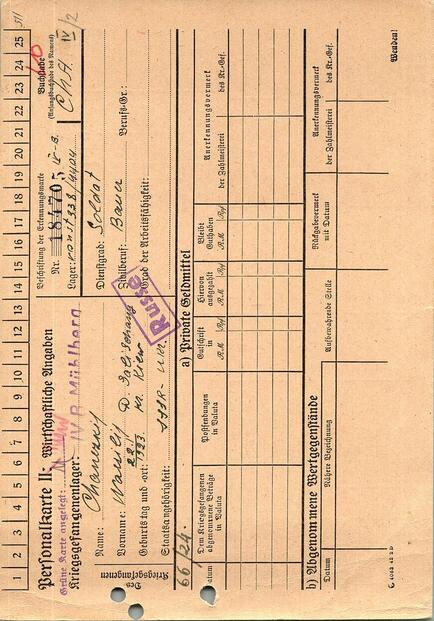 1 2 3 4 5 6 7 8 9 10 11 12 13 14 15 16 17 18 19 20 21 22 23 24 25
Personalkarte II: Wirtschaftliche Angaben
Grüne Karte angelegt:
Kriegsgefangenenlager: IV B Mühlberg
Beschriftung der Erkennungsmarke
Nr. 184705 IV-B.
Lager:
Buchstabe
(Anfangsbuchstabe des Namens)
Ch.
IV/2
Des Kriegsgefangenen
Name:
Vorname: Wassilij
Dienstgrad: Soldat
Geburtstag und -ort:
Zivilberuf: Bauer
Berufs-Gr.:
Staatsangehörigkeit:
Grad der Arbeitsfähigkeit:
Russe
66/24.
a) Private Geldmittel
Datum
Dem Kriegsgefangenen abgenommene Beträge in Valuta
Postsendungen in Valuta
Gutschrift in
R.M. Rpf
Hiervon ausgezahlt
R.M. Rpf
Bleibt Guthaben
R.M. Rpf
Anerkennungsvermerk
der Zahlmeisterei
des Kr.-Gef.
b) Abgenommene Wertgegenstände
Datum
Nähere Bezeichnung
Aufbewahrende Stelle
Rückgabevermerk mit Datum
Anerkennungsvermerk
der Zahlmeisterei
des Kr.-Gef.
Wenden!